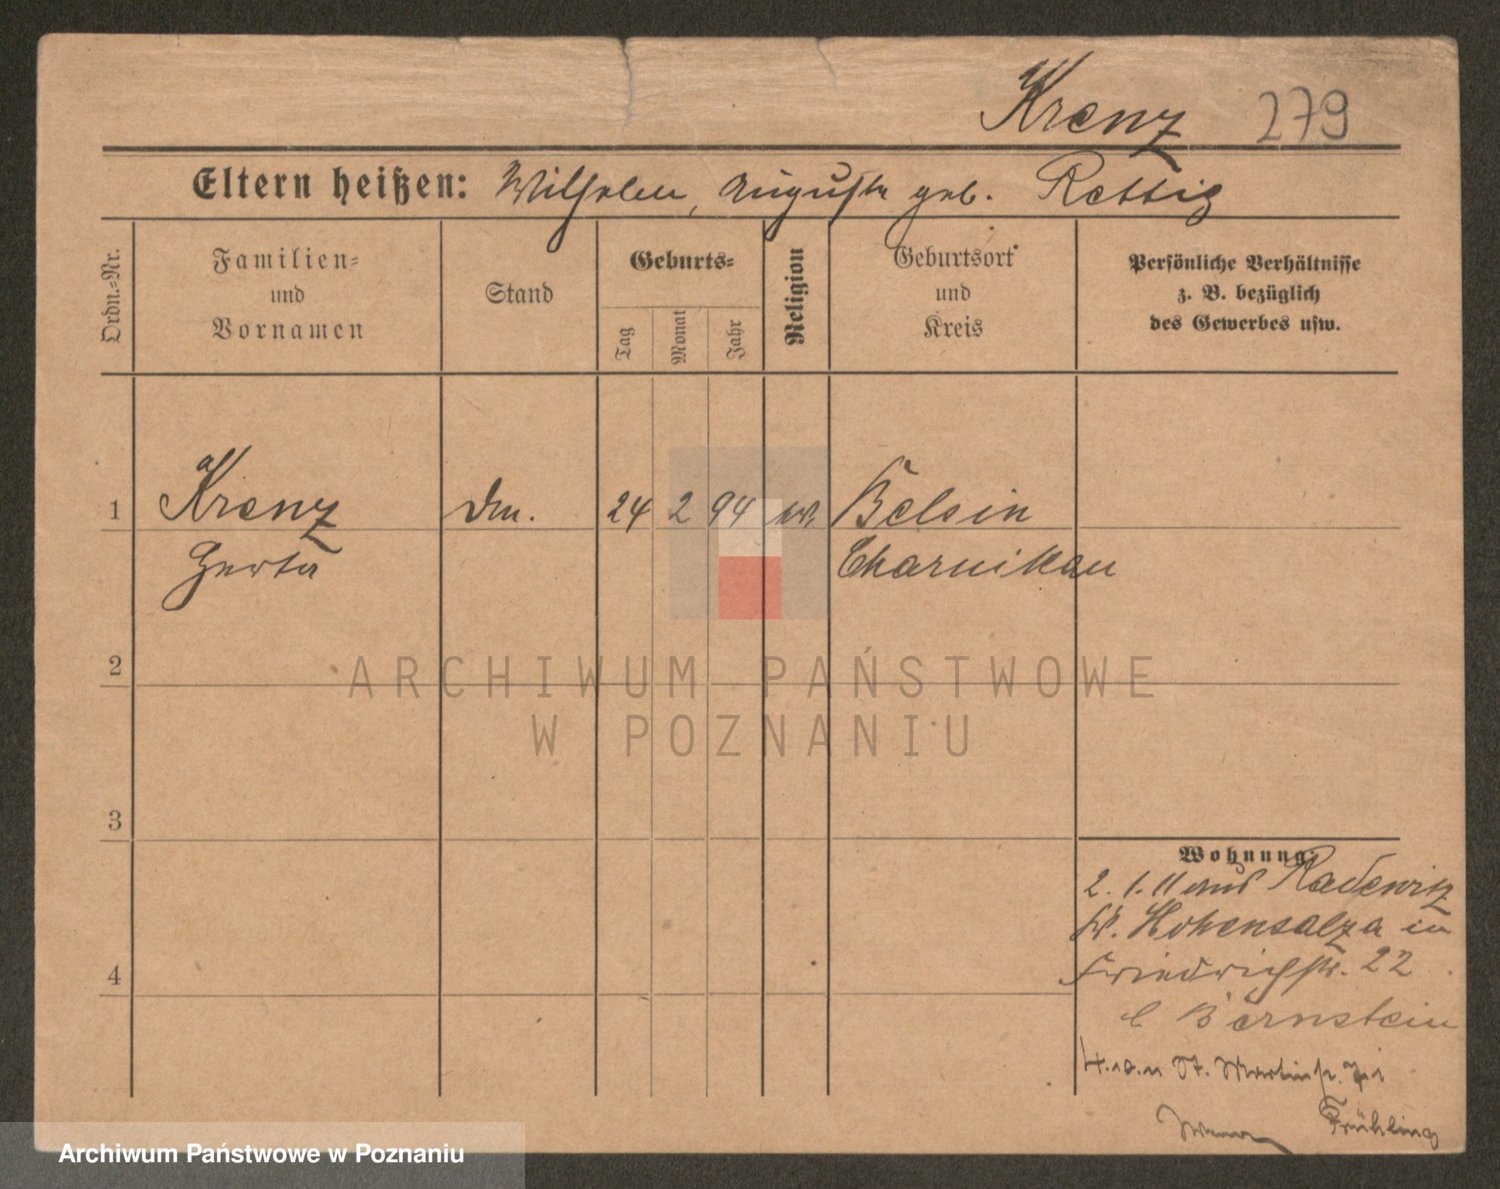 Krenz 279
Eltern heißen: Wilhelm, Auguste geb. Rettig
Ordn.-Nr.
Familien-
und
Vornamen
Stand
Geburts-
Tag
Monat
Jahr
Religion
Geburtsort
und
Kreis
Persönliche Verhältnisse
z. B. bezüglich
des Gewerbes usw.
1 Krenz Dm. 24 2 94 ev. Belsin
Herta Charnikau
2
ARCHIWUM PAŃSTWOWE
W POZNANIU
3
Wohnung:
2. 1. 11 aus Radewitz
Kr. Hohensalza in
Friedrichstr. 22
b Bernstein
4
4.10.11 St. Martinstr.
Frühling
Archiwum Państwowe w Poznaniu